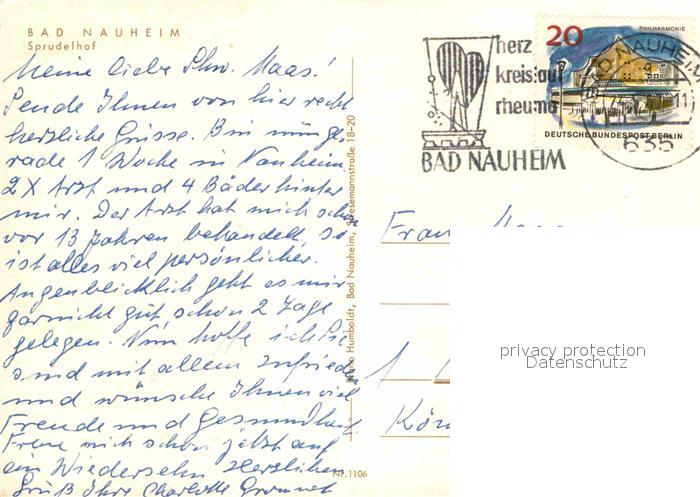 BAD NAUHEIM
Sprudelhof
Meine liebe Schw. Maas!
Sende Ihnen von hier recht
herzliche Grüsse. Bin nun ge-
rade 1 Woche in Nauheim
2 X Arzt und 4 Bäder hinter
mir. Der Arzt hat mich schon
vor 13 Jahren behandelt, so
ist alles viel persönlicher.
Augenblicklich geht es mir
garnicht gut schon 2 Tage
gelegen. Nun hoffe ich Sie
sind mit allem zufrieden
und wünsche Ihnen viel
Freude und Gesundheit.
Freue mich schon jetzt auf
ein Wiedersehn Herzlichen
Gruß Ihre Charlotte
Humboldt, Bad Nauheim, Stresemannstraße 18-20
Nr. 1106
herz
kreislauf
rheuma
BAD NAUHEIM
20
PHILHARMONIE
DEUTSCHE BUNDESPOST BERLIN
BAD NAUHEIM
635
Frau Maas
1
Kön
privacy protection
Datenschutz